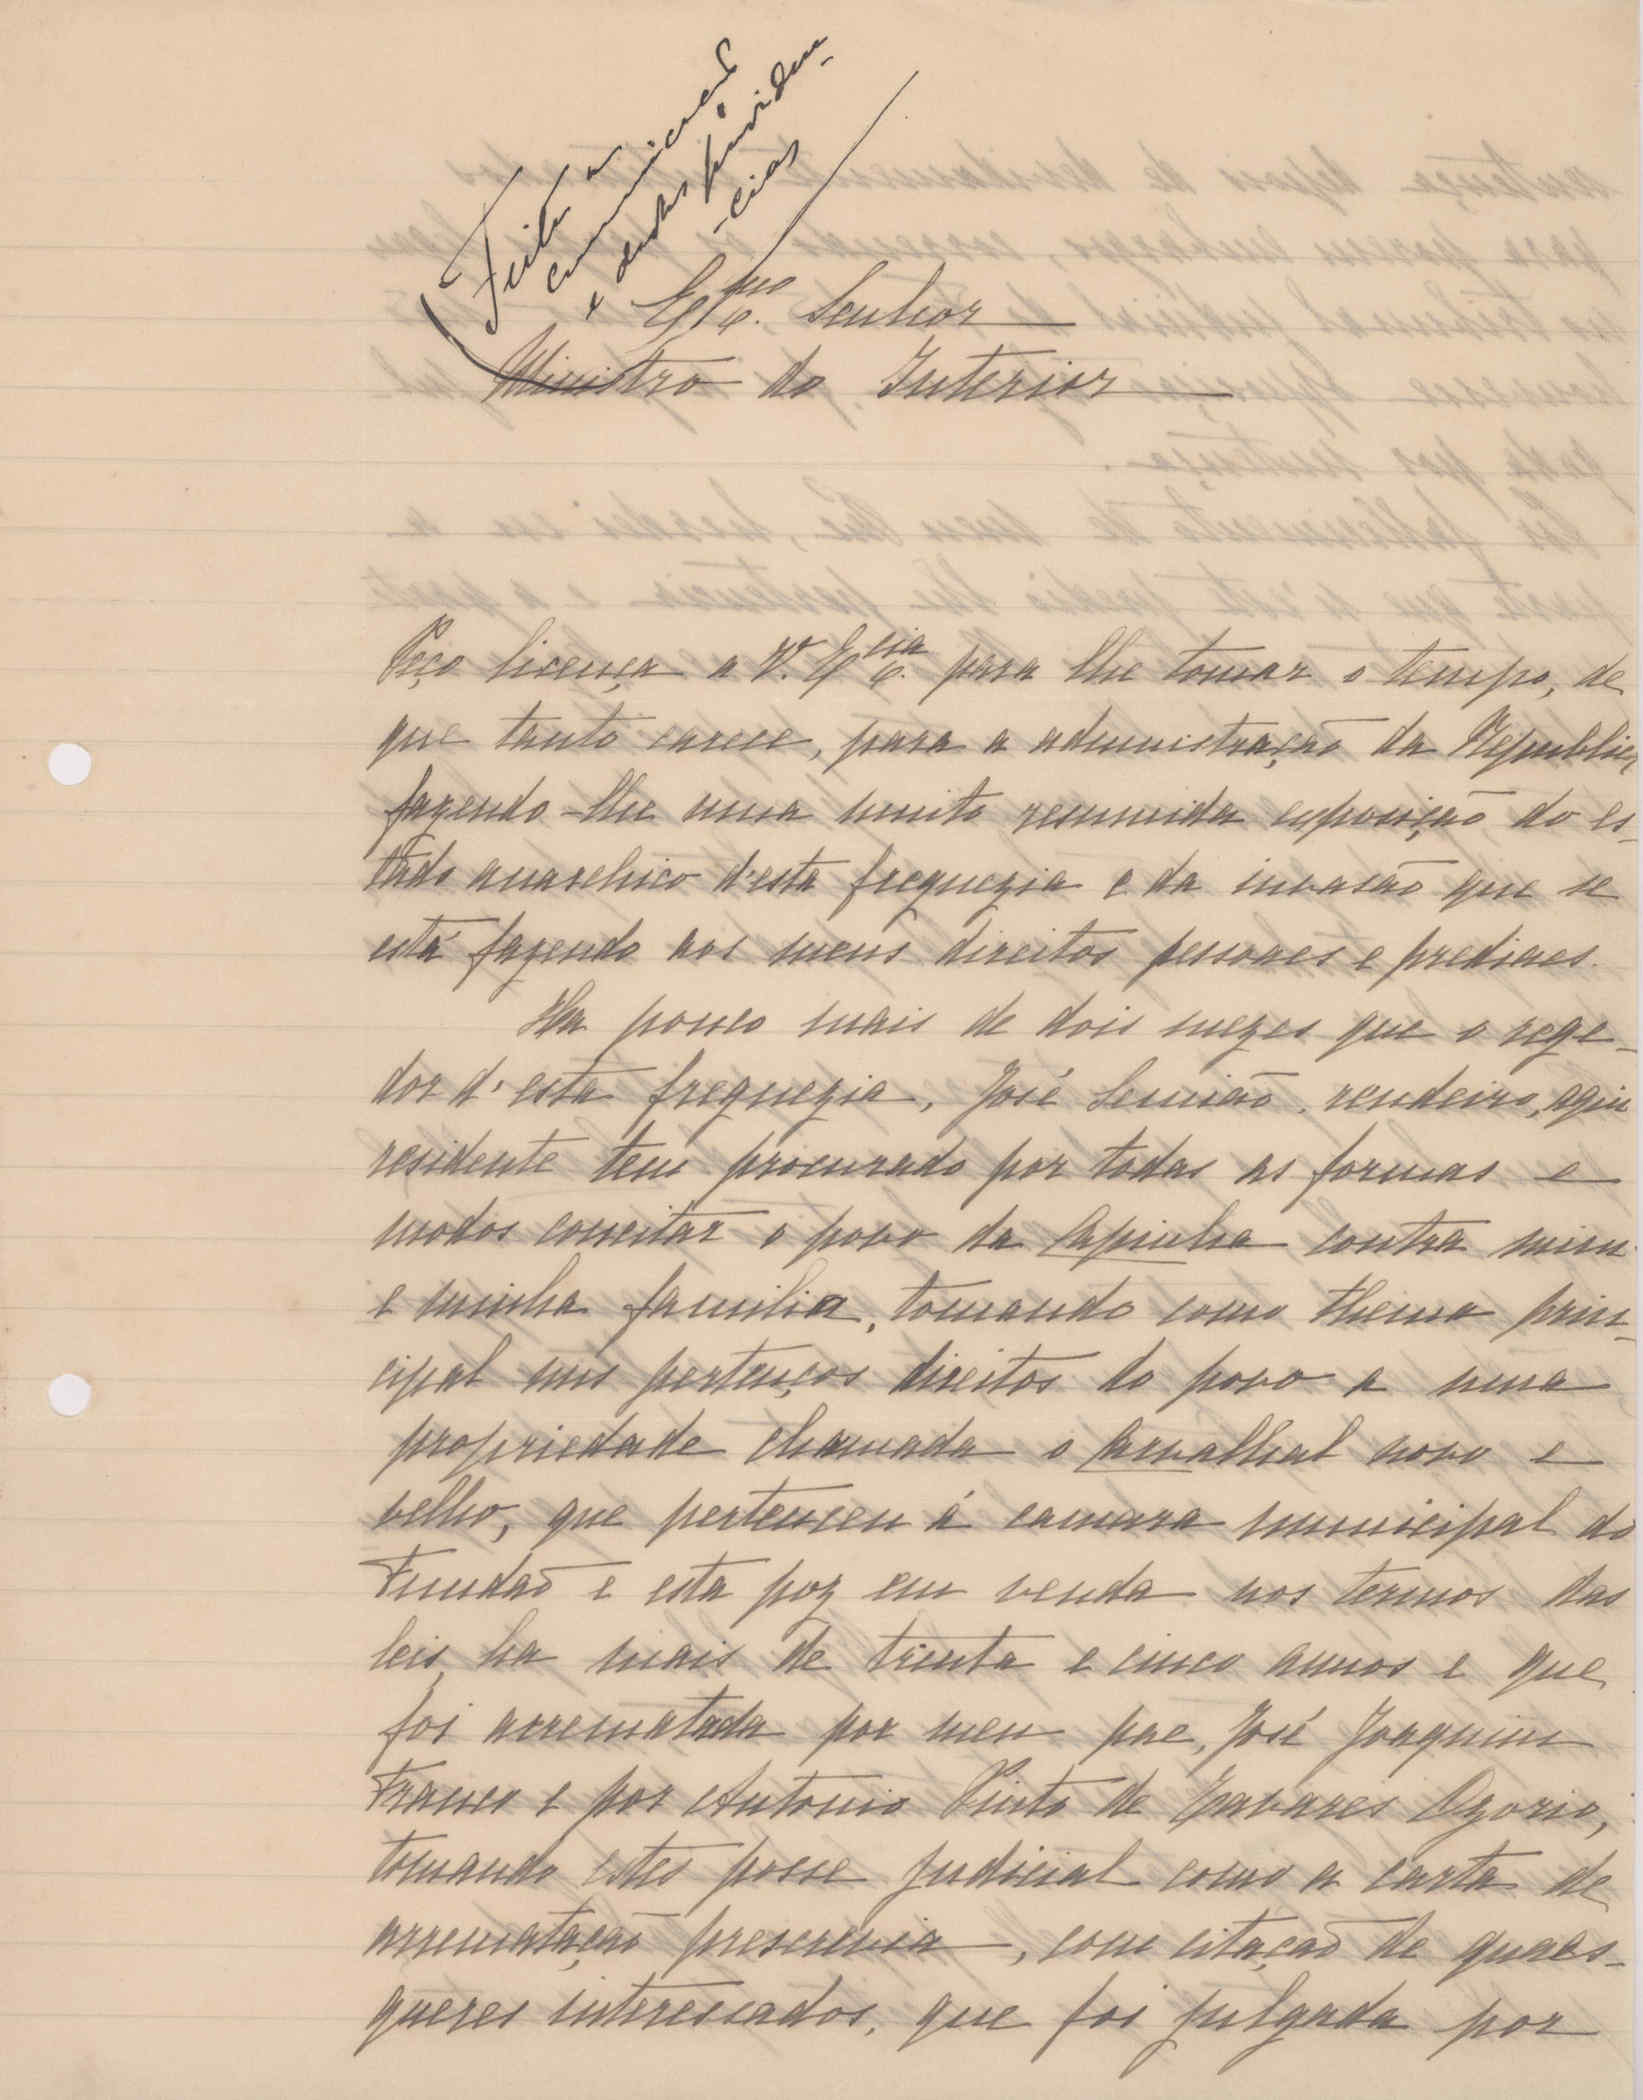 Feita a
communicação
e dadas providen-
-cias
Ex.mo Senhor
Ministro do Interior
Peço licença a V. Ex.cia para lhe tomar o tempo, de
que tanto carece, para a administração da Republica
fazendo-lhe uma muito resumida exposição do es-
tado anarchico d'esta freguezia e da invasão que se
está fazendo aos meus direitos pessoaes e prediaes.
Ha pouco mais de dois mezes que o rege-
dor d'esta freguezia, José Semião, rendeiro, aqui
residente tem procurado por todas as formas e
modos concitar o povo da Capinha contra mim
e minha familia, tomando como thema prin-
cipal uns pertenços direitos do povo a uma
propriedade chamada o Carvalhal novo e
velho, que pertenceu á camara municipal do
Fundão e esta poz em venda nos termos das
leis, ha mais de trinta e cinco annos e que
foi arrematada por meu pae, José Joaquim
Franco e por Antonio Pinto de Tavares Ozorio,
tomando estes posse judicial como a carta de
arrematação prescrevia, com citação de quaes-
queres interessados, que foi julgada por